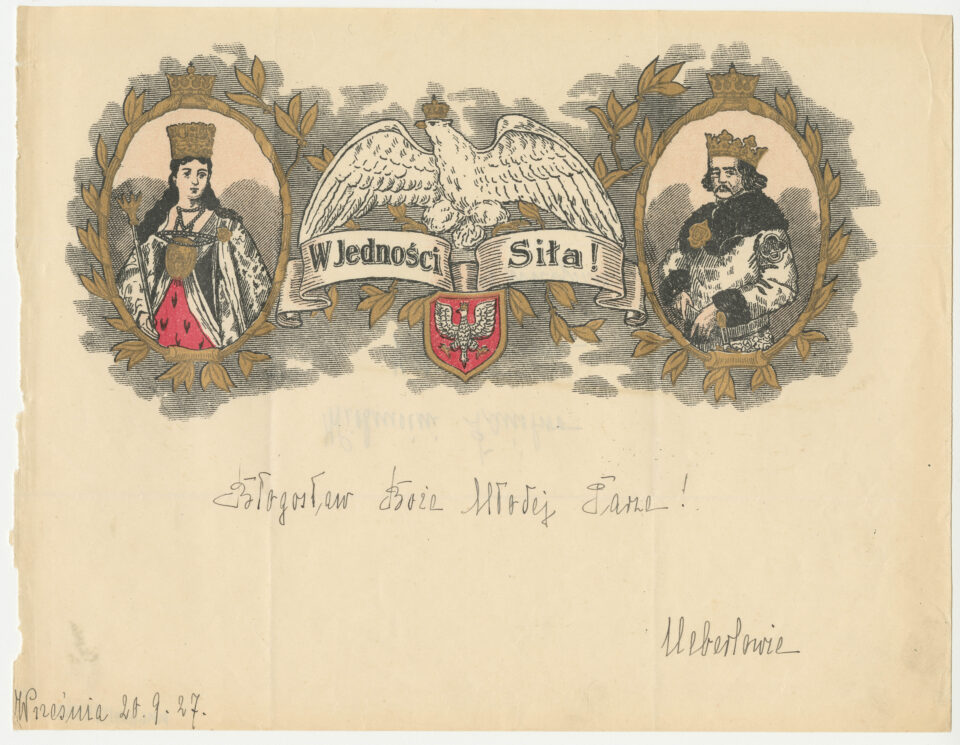 W Jedności Siła!
Błogosław Boże Młodej Parze!
Ueberlowie
Września 20.9.27.